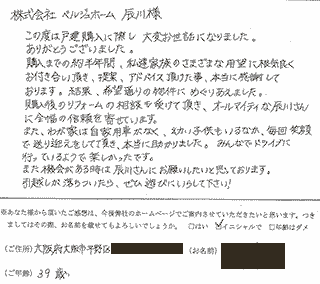 株式会社 ベルジュホーム 辰川様
この度は戸建購入に際し大変お世話になりました。
ありがとうございました。
購入までの約半年間、私達家族のさまざまな用望に根気良く
お付き合い頂き、提案、アドバイス頂けた事、本当に感謝して
おります。結果、希望通りの物件にめぐりあえました。
購入後のリフォームの相談も受けて頂き、オールマイティな辰川さん
に全幅の信頼を寄せています。
また、わが家は自家用車がなく、幼い子供もいるなか、毎回笑顔
で送り迎えをして頂き、本当に助かりました。みんなでドライブに
行っているようで楽しかったです。
また機会がある時は辰川さんにお願いしたいと思っております。
引越しが落ちついたら、ぜひ遊びにいらして下さい!
※あなた様から頂いたご感想は、今後弊社のホームページでご案内させていただきたいと思います。つき
ましてはその際、お名前を載せてもよろしいでしょうか。 □はい ☑イニシャルで □匿名はダメ
(ご住所)大阪府大阪市平野区 (お名前)
(ご年齢) 39歳